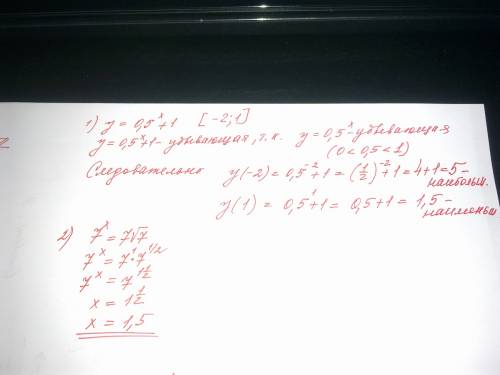 1) y = 0,5^x+1 [-2;1]
y = 0,5^x+1 - убывающая, т.к. y = 0,5^x - убывающая
(0 < 0,5 < 1)
Следовательно y(-2) = 0,5^-2+1 = (1/2)^-2+1 = 4+1=5 - наибольш.
y(1) = 0,5^1+1 = 0,5+1 = 1,5 - наименьш
2) 7^x = 7√7
7^x = 7^1·7^1/2
7^x = 7^1 1/2
x = 1 1/2
x = 1,5